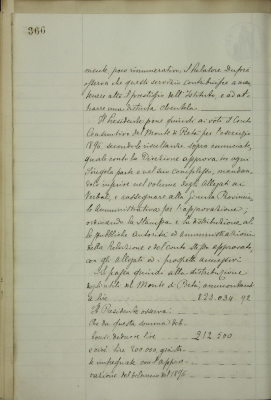 366
mente poco rimunerativi. Il Relatore Dufour
osserva che questi servizi contribuiscono a man-
tenere alto il prestigio dell'Istituto, e ad at-
trarre una distinta clientela.
Il Presidente pone quindi ai voti il Conto
Consuntivo del Monte di Pietà per l'esercizio
1895, secondo le risultanze sopra enunciate,
quale conto la Direzione approva in ogni
singola parte e nel suo complesso, mandan-
dolo inserire nel volume degli Allegati ai
Verbali, e rassegnare alla Giunta Provincia-
le Amministrativa per l'approvazione;
ordinando la stampa e la distribuzione al-
le pubbliche Autorità ed Amministrazioni
della Relazione e del Conto stesso approvato,
con gli allegati e prospetti annessivi.
Si passa quindi alla distribuzione
utili del Monte di Pietà, ammontanti
a lire 823.034.92
Il Presidente osserva:
Che da questa somma deb-
bonsi dedurre lire 212.500
cioè lire 200.000, già sta-
te impiegate con l'appro-
vazione del bilancio del 1895